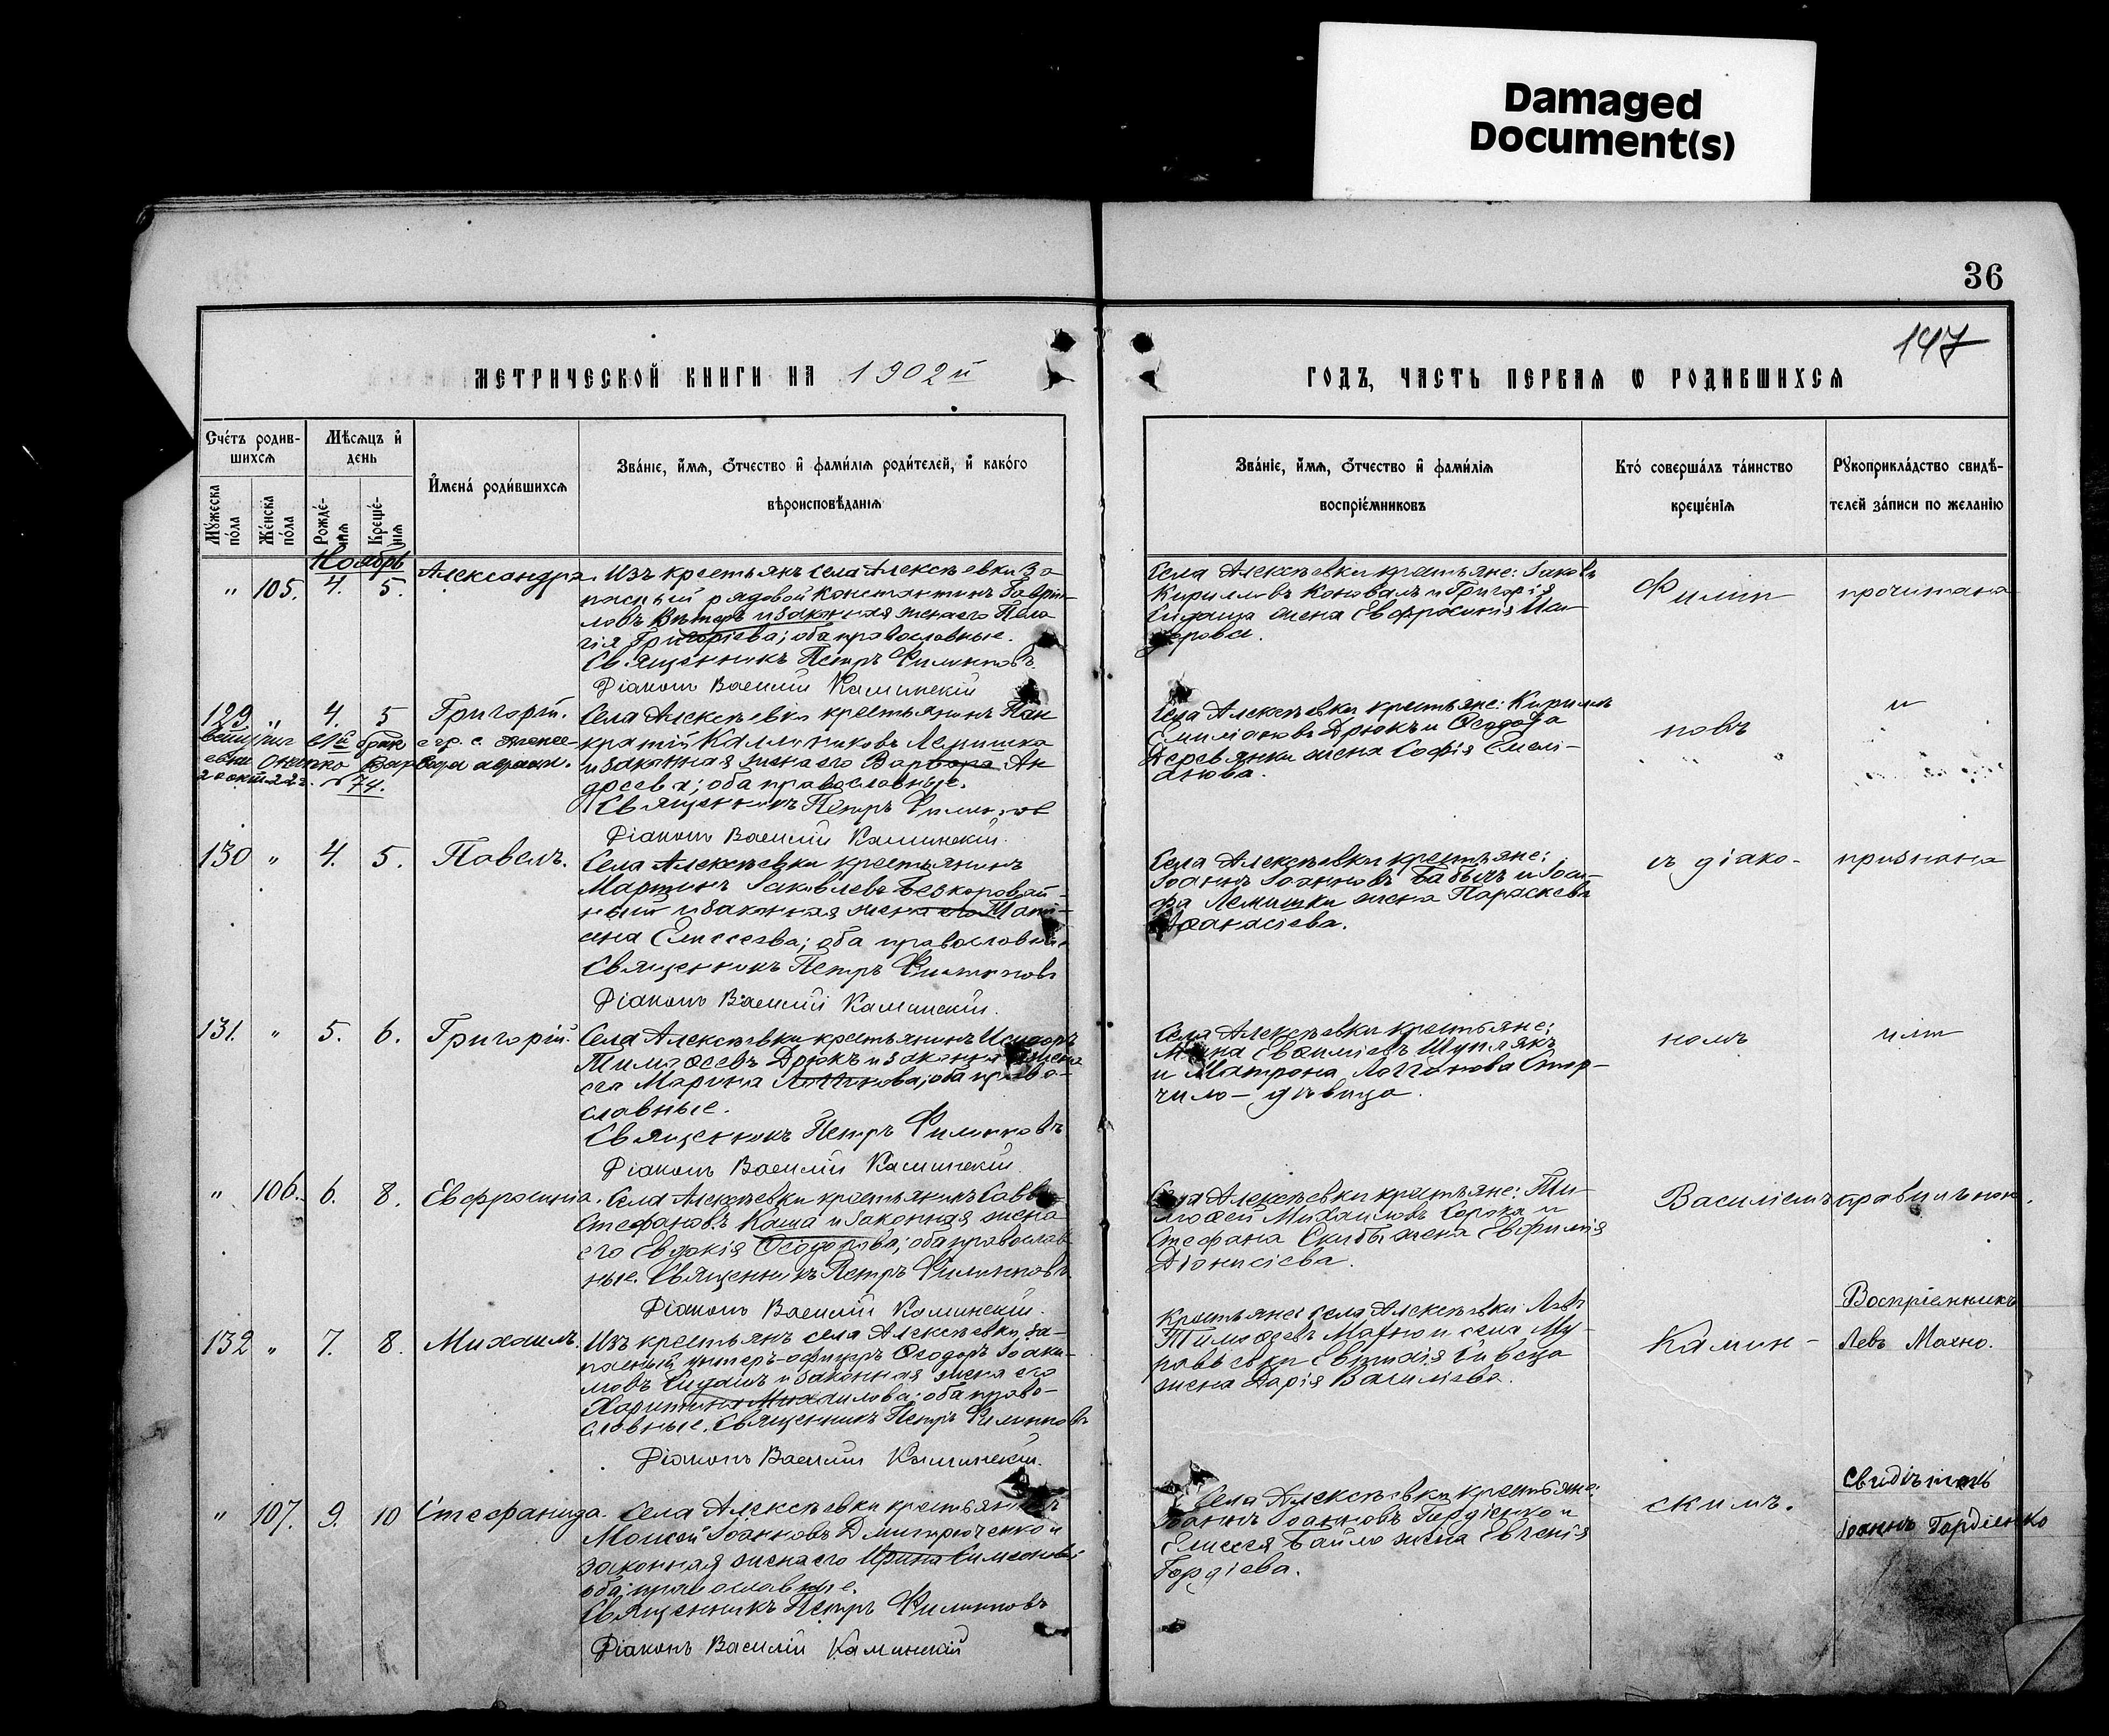 Damaged
Document(s)
36
147
МЕТРИЧЕСКОЙ КНИГИ НА 1902й
ГОДЪ, ЧАСТЬ ПЕРВАЯ Ѡ РОДИВШИХСЯ
Счéтъ родив-
шихся
Мѣсяцъ и҆
день
Мꙋжеска
пóла
Жéнска
пóла
Рождé-
нія
Крещé-
нія
И҆мена́ роди́вшихся
Зва́ніе, и҆́мя, ѻ҆́тчество и҆ фами́лія роди́телей, и҆ како́го
вѣроисповѣ́данія
Зва́ніе, и҆́мя, ѻ҆́тчество и҆ фами́лія
воспріе́мниковъ
Кто́ соверша́лъ та́инство
креще́нія
Рꙋкоприкла́дство свидѣ́-
телей за́писи по жела́нію
Ноябрь
" 105. 4. 5. Александра.
Изъ крестьянъ села Алексѣевки за-
пасный рядовой Константинъ Гаврии-
ловъ Вѣтеръ и законная жена его Пела-
гія Григорiева; оба православные.
Священникъ Петръ Филипповъ.
Діаконъ Василій Каминскій
Села Алексѣевки крестьяне: Іаковъ
Кирилловъ Коновалъ и Григорія
Сидаша жена Евфросинія
Филип-
прочитана
129. " 4. 5 Григорій.
Села Алексѣевки крестьянинъ Пан-
кратій Каллиниковъ Лемишка
и законная жена его Варвара Ан-
дреева; оба православные.
Священникъ Петръ Филиппов
Діаконъ Василій Каминскій.
Села Алексѣевки крестьяне: Кириллъ
Емиліановъ Дрюкъ и Ѳеодора
Деревянки жена Софія Емелі-
анова.
повъ
и
130 " 4. 5. Павелъ.
Села Алексѣевки крестьянинъ
Мартинъ Іаковлевъ Безкоровай-
ный и законная жена его Тати-
ана Елисеева; оба православные
Священникъ Петръ Филипповъ
Діаконъ Василій Каминскій.
Села Алексѣевки крестьяне:
Іоаннъ Іоанновъ Бабычъ и Іоси-
фа Лемишки жена Параскева
Аѳанасіева.
съ діако-
признана
131. " 5. 6. Григорій.
Села Алексѣевки крестьянинъ Исидоръ
Тимоѳеевъ Дрюкъ и законная жена
его Марина Логгинова; оба право-
славные.
Священникъ Петръ Филипповъ
Діаконъ Василій Каминскій.
Села Алексѣевки крестьяне:
Мина Евфиміевъ Шуплякъ
и Матрона Логгинова Стор-
чило - дѣвица.
номъ
" 106. 6. 8. Евфросинія.
Села Алексѣевки крестьянинъ Савва
Стефановъ Каша и законная жена
его Евдокія Ѳеодорова; оба православ-
ные. Священникъ Петръ Филипповъ
Діаконъ Василій Каминскій.
Села Алексѣевки крестьяне: Ти-
моѳей Михаиловъ Сорока и
Стефана Скибы жена Евфимія
Діонисіева.
Василіемъ
правильною.
132 " 7. 8. Михаилъ.
Изъ крестьянъ села Алексѣевки, за-
пасный унтеръ-офицеръ Ѳеодоръ Іоаки-
мовъ Сидашъ и законная жена его
Харитина Михаилова; оба право-
славные. Священникъ Петръ Филипповъ
Діаконъ Василій Каминскій.
Крестьяне: села Алексѣевки Левъ
Тимоѳеевъ Махно и села Му-
жена Дарія Василіева.
Камин-
Воспріемникъ
Левъ Махно.
" 107. 9. 10 Стефанида.
Села Алексѣевки крестьянинъ
Моисей Іоанновъ Дмитрюченко и
законная жена его Ирина Симеонова
оба православные.
Священникъ Петръ Филипповъ
Діаконъ Василій Каминскій
Села Алексѣевки крестьяне:
Іоаннъ Іоанновъ Гордіенко и
Елисея Байло жена Евгенія
Гордіева.
скимъ.
Свидѣтель
Іоаннъ Гордіенко